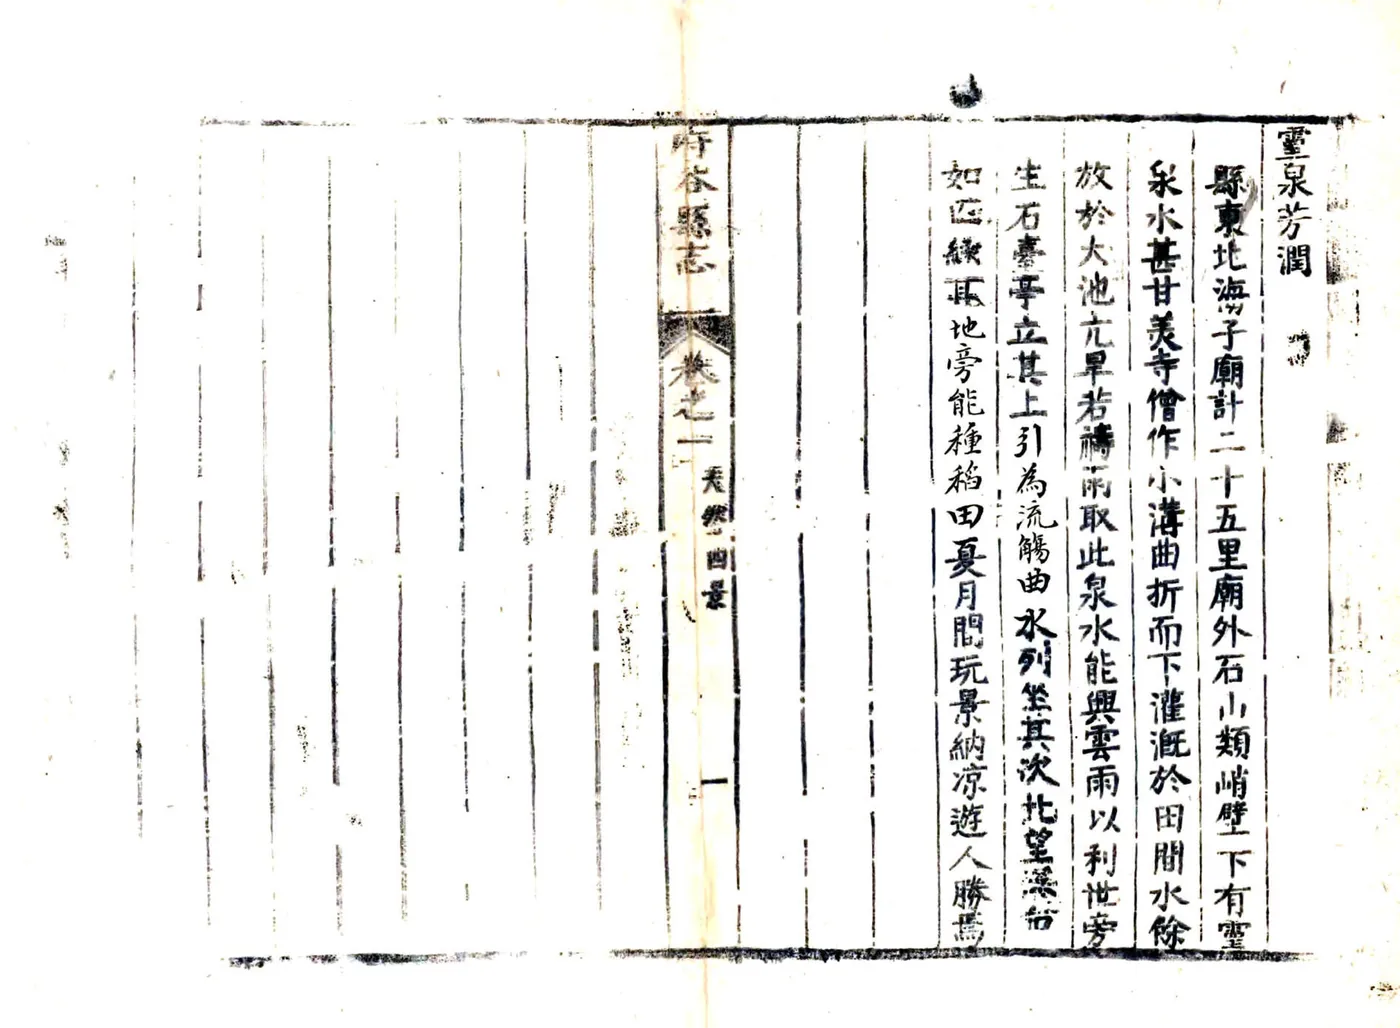 靈泉芳潤
縣東北海子廟計二十五里廟外石山類峭壁下有靈
泉水甚甘美寺僧作小溝曲折而下灌溉於田間水餘
放於大池亢旱若禱雨取此泉水能興雲雨以利世旁
生石臺亭立其上引為流觴曲水列坐其次北望
如地旁能種稻田夏月間玩景納凉遊人勝焉
府谷縣志
卷之一
天然四景
一